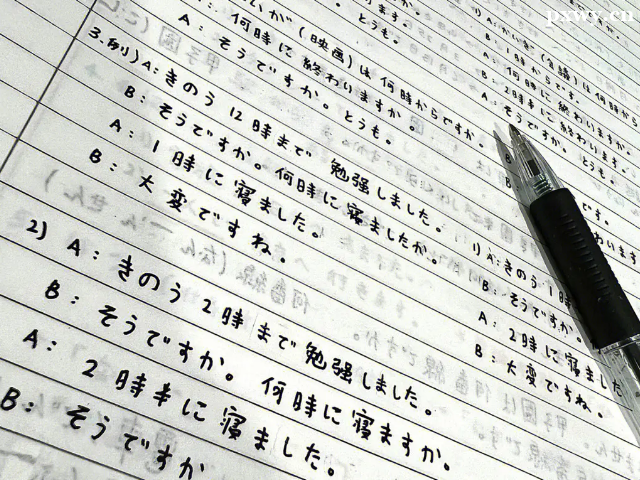 いが(映画)は何時からですか。
何時に終わりますか。
A: そうですか。とうも。
3.例)A: きのう 12時まで 勉強しました。
B: そうですか。何時に寝ましたか。
A: 1時に寝ました。
B: 大変ですね。
2) A: きのう2時まで勉強しました。
B: そうですか。何時に寝ますか。
A: 2時半に寝ました。
B: そうですか
(会議)は何時から
B: 1時からです。
A: 何時に終わりますか。
B: 2時半に終わります。
A: そうですか。とうも。
です。
1)A: きのう 1時
B: そうですか。
A: 2時に寝ました
B: 大変ですね。
pxwy.cn